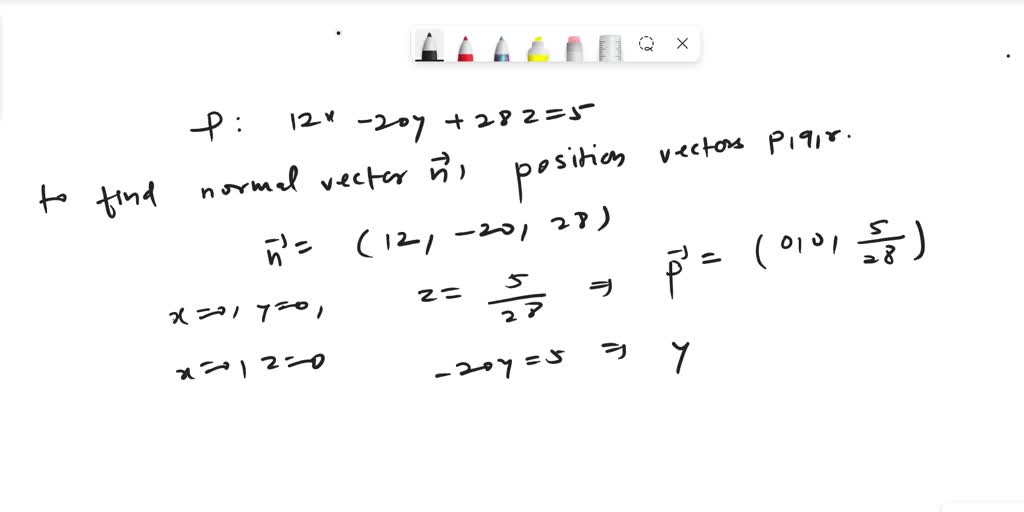 P: 12x -20y + 28z = 5
to find normal vector n⃗, position vectors p,q,r.
n⃗ = (12, -20, 28)
x=0, y=0, z = 5/28 ⇒ p⃗ = (0,0, 5/28)
x=0, z=0 -20y = 5 ⇒ y